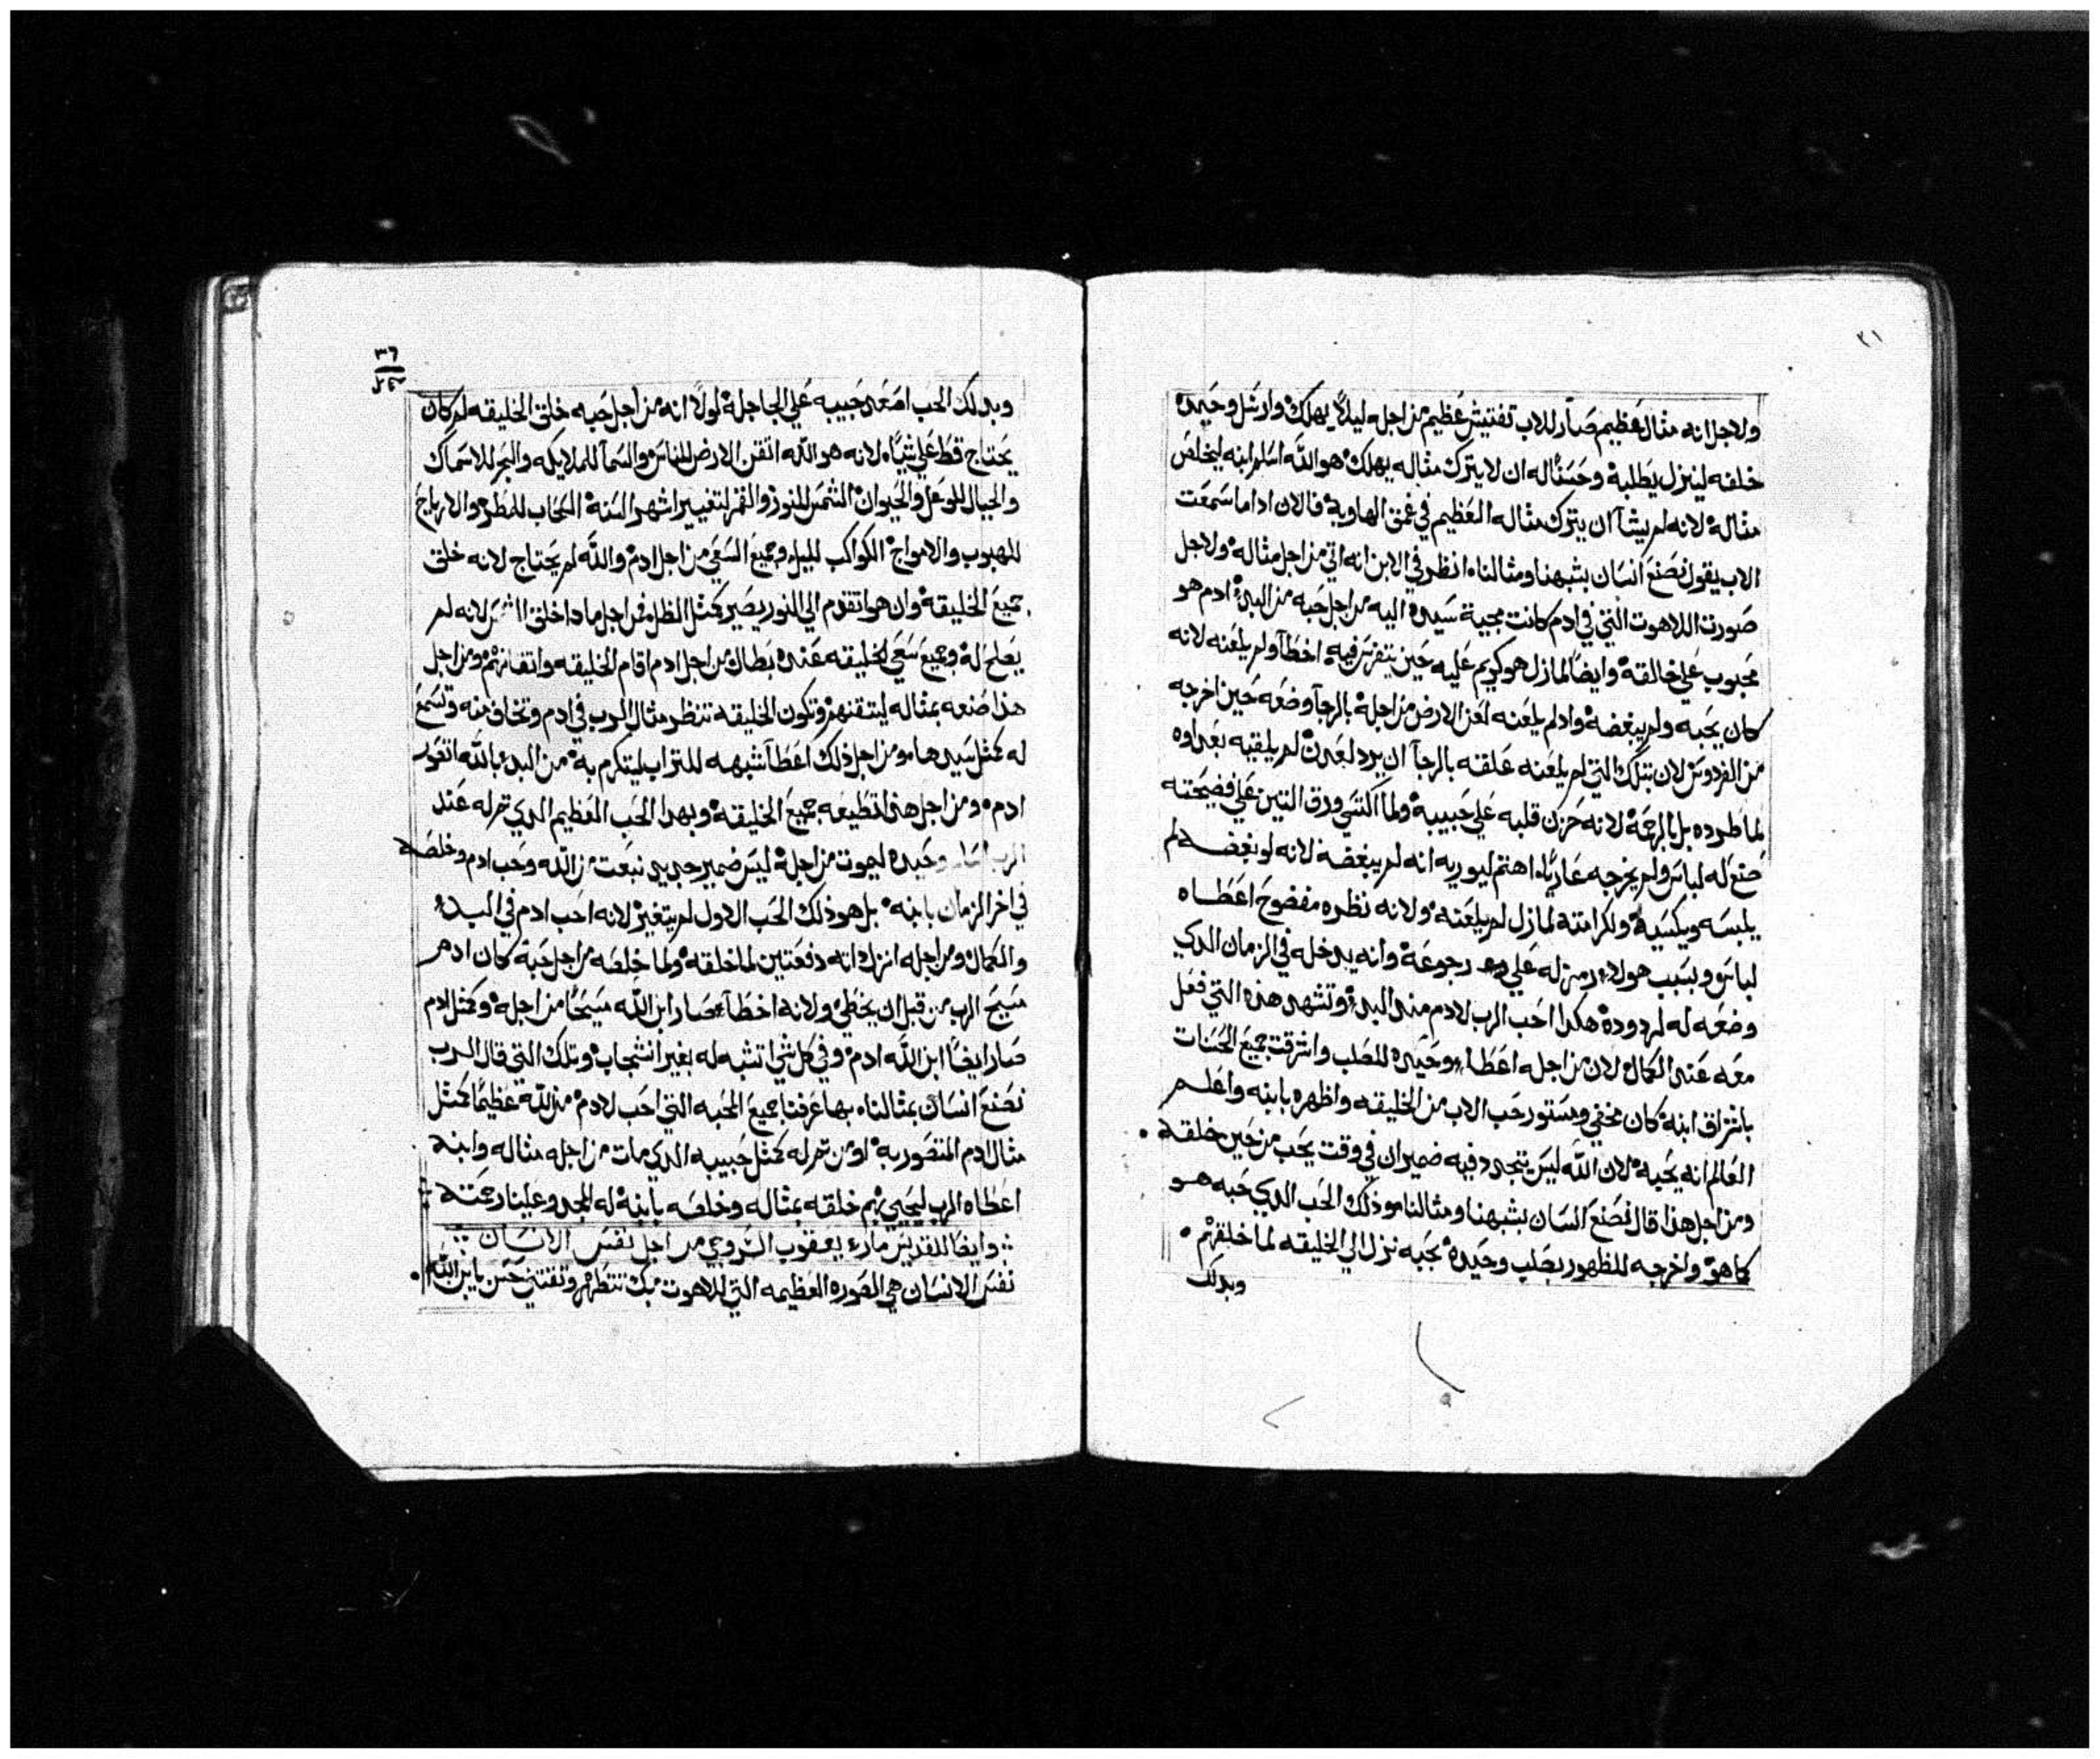 ٣١
ولاجل انه مثال عظيم صار للاب تفتيش عظيم من اجله ليلا يهلك وارسل وحيده
خلفه لينزل يطلبه وحسن له ان لا يترك مثاله يهلك هو الله اسلم ابنه ليخلص
مثاله لانه لم يشا ان يترك مثاله العظيم في عمق الهاوية فالان اداما سمعت
الاب يقول نصنع انسان بشبهنا ومثالنا انظر في الابن انه اتي من اجل مثاله ولاجل
صورت اللاهوت التي في ادم كانت مجية سيده اليه من اجل حبه من البدء ادم هو
محبوب علي خالقه وايضا لما زل هو كريم عليه حين يتفرس فيه اخطا ولم يلعنه لانه
كان يحبه ولم يبغضه واد لم يلعنه لعن الارض من اجله بالرجا وضعه حين اخرجه
من الفردوس لان بتلك التي لم يلعنه علقه بالرجا ان يرد لعدن لم يلقيه بعداوه
لما طرده بل بالرحمة لانه حزن قلبه علي حبيبه ولما اكتسي ورق التين علي فضيحته
صنع له لباس ولم يخرجه عاريا اهتم ليوريه انه لم يبغضه لانه لو بغضه لم
يلبسه ويكسيه ولكرامته لما زل لم يلعنه ولانه نظره مفضوح اعطاه
لباس وبسبب هولاء رمز له علي رجوعه وانه يدخله في الزمان الدي
وضعه له لمردوده هكدا احب الرب لادم مند البدء وتشهد هذه التي فعل
معه عند الكمال لان من اجله اعطا وحيده للصلب واشرقت جميع الحسنات
باشراق ابنه كان مخفي ومستور حب الاب من الخليقه واظهره بابنه واعلم
العالم انه يحبه لان الله ليس يتجدد فيه ضمير ان في وقت يحب من حين خلقه
ومن اجل هذا قال نصنع انسان بشبهنا ومثالنا هو ذلك الحب الدي حبه هو
كما هو واخرجه للظهور بصلب وحيده بحبه نزل الي الخليقه لما خلقهم
وبدلك
٣٦
وبدلك الحب اصعد حبيبه علي الجاجلة لولا انه من اجل حبه خلق الخليقه لم كان
يحتاج قط علي شياء لانه هو الله اتقن الارض للناس والسما للملايكه والبحر للاسماك
والجبال للوعل والحيوان الشمس للنور والقمر لتغيير اشهر السنة السحاب للمطر والارياح
للهبوب والامواج الكواكب لليل وجميع السعي من اجل ادم والله لم يحتاج لانه خلق
جميع الخليقة وان هو اتقدم الي النور يصير كمثل الظل فمن اجل ما دا خلق الشمس لانه لم
يعلم له وجميع سعي الخليقه عنده بطال من اجل ادم اقام الخليقه واتقانهم ومن اجل
هذا صنعه بمثاله ليتقنهم وتكون الخليقه تنظر مثال الرب في ادم وتخاف منه وتسمع
له كمثل سيدها ومن اجل ذلك اعطا شبهه للتراب ليتكرم به من البدء بالله اتصور
ادم ومن اجل هذا تطيعه جميع الخليقة وبهدا الحب العظيم الدي تم له عند
الرب وحيده ليموت من اجله ليس ضمير جديد نبعت من الله وحب ادم وخلصه
في اخر الزمان بابنه بل هو ذلك الحب الاول لم يتغير لانه احب ادم في البدء
والكمال ومن اجله انزل داته دفعتين لما خلقه ولما خلصه من اجل حبه كان ادم
مسيح الرب من قبل ان يخطي ولانه اخطا صار ابن الله مسيحا من اجله وكمثل ادم
صار ايضا ابن الله ادم وفي كل شي اتشبه له بغير انشجاب وتلك التي قال الرب
نصنع انسان بمثالنا بها عرفنا جميع المحبه التي احب لادم من الله عظيما كمثل
مثال ادم المتصور به او من تم له كمثل حبيبه الدي مات من اجله مثاله وابنه
اعطاه الرب ليحيي بهم خلقه بمثاله وخلصه بابنه له المجد وعلينا رحمته
وايضا للقديس ماري يعقوب السروجي من اجل نفس الانسان
نفس الانسان هي الصوره العظيمه التي للاهوت بك تتطهر وتقتني حسن يا ابن الله